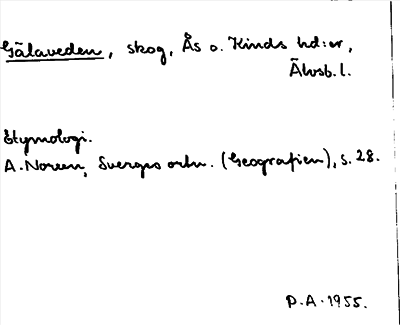 Gälaveden, skog, Ås o. Kinds hd:er,
Älvsb. l.
Etymologi.
A. Noreen, Sveriges ortn. (Geografien), s. 28.
P.A. 1955.